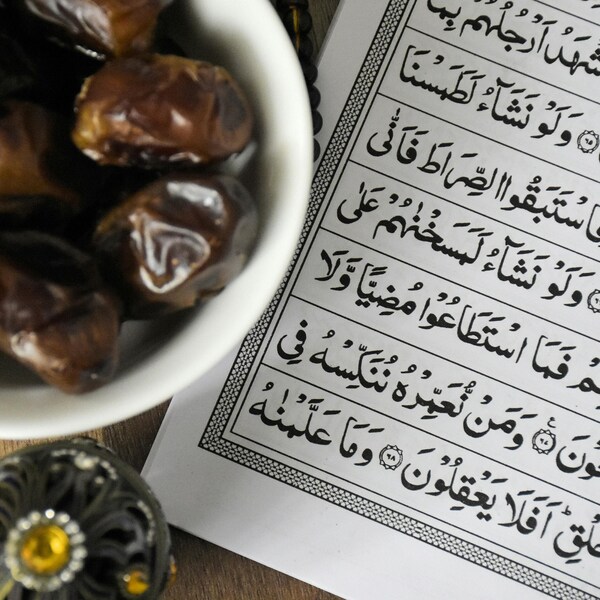 شْهَدُ اَرْجُلُهُمْ بِمَا
۝٦٥ وَلَوْ نَشَآءُ لَطَمَسْنَا
فَاسْتَبَقُوا الصِّرَاطَ فَاَنّٰى
وَلَوْ نَشَآءُ لَمَسَخْنٰهُمْ عَلٰى
هِمْ فَمَا اسْتَطَاعُوْا مُضِيًّا وَّلَا
عُوْنَ ۝٦٧ وَمَنْ نُّعَمِّرْهُ نُنَكِّسْهُ فِى
خَلْقِ ؕ اَفَلَا يَعْقِلُوْنَ ۝٦٨ وَمَا عَلَّمْنٰهُ